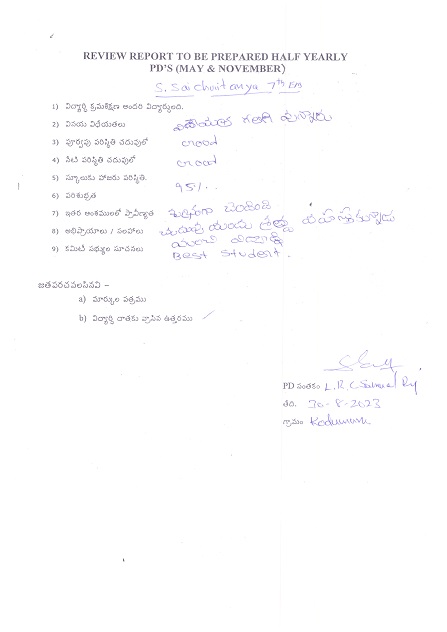 REVIEW REPORT TO BE PREPARED HALF YEARLY
PD'S (MAY & NOVEMBER)
S. Sai choitanya 7th EM
1) విద్యార్థి క్రమశిక్షణ అందరి విద్యార్థులది.
2) వినయ విధేయతలు కలిగి వున్నాడు
3) పూర్వపు పరిస్థితి చదువులో Good
4) నేటి పరిస్థితి చదువులో Good
5) స్కూలుకు హాజరు పరిస్థితి. 95%.
6) పరిశుభ్రత
7) ఇతర అంశములలో ప్రావీణ్యత
8) అభిప్రాయాలు / సలహాలు
9) కమిటి సభ్యుల సూచనలు Best Student.
జతపరచవలసినవి –
a) మార్కుల పత్రము
b) విద్యార్థి దాతకు వ్రాసిన ఉత్తరము
PD సంతకం L.R.C Samuel Raj
తేది. 30-8-2023
గ్రామం Kodumuru